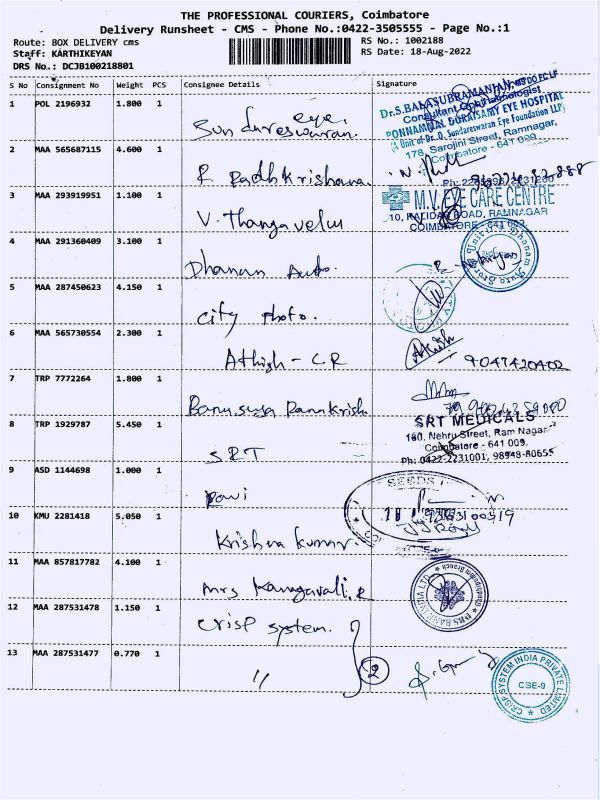 THE PROFESSIONAL COURIERS, Coimbatore
Delivery Runsheet - CMS - Phone No.:0422-3505555 - Page No.:1
Route: BOX DELIVERY cms RS No.: 1002188
Staff: KARTHIKEYAN RS Date: 18-Aug-2022
DRS No.: DCJB100218801
S No Consignment No Weight PCS Consignee Details Signature
1 POL 2196932 1.800 1
eye,
Sundareswaran.
Dr.S.BALASUBRAMANIAN,
Consultant Ophthalmologist
PONNAMMAL DURAISAMY EYE HOSPITAL
(A Unit of Dr. D. Sundareswaran Eye Foundation LLP)
178, Sarojini Street, Ramnagar,
Coimbatore - 641 009.
2 MAA 565687115 4.600 1
R. Radhkrishana
3 MAA 293919951 1.100 1
V. Thangavelu
M.V. EYE CARE CENTRE
10, KALIDAS ROAD, RAMNAGAR
COIMBATORE - 641 009.
4 MAA 291360409 3.100 1
Dhanam Auto.
5 MAA 287450623 4.150 1
City Photo.
6 MAA 565730554 2.300 1
Athish - CR
9047420402
7 TRP 7772264 1.800 1
Banusuya Ramakrish
8 TRP 1929787 5.450 1
SRT
SRT MEDICALS
160, Nehru Street, Ram Nagar
Coimbatore - 641 009.
Ph: 0422-2231001, 98948-80655
9 ASD 1144698 1.000 1
Ravi
SEEDS
10 KMU 2281418 5.050 1
Krishna kumar.
11 MAA 857817782 4.100 1
Mrs Kangavali. R
12 MAA 287531478 1.150 1
Crisp system.
13 MAA 287531477 0.770 1
〃
2
CRISP SYSTEM INDIA PRIVATE LIMITED
CBE-9